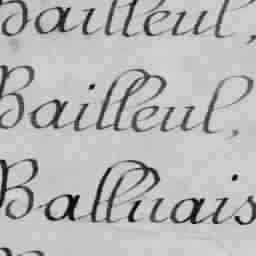 Bailleul,
Bailleul,
Balluais